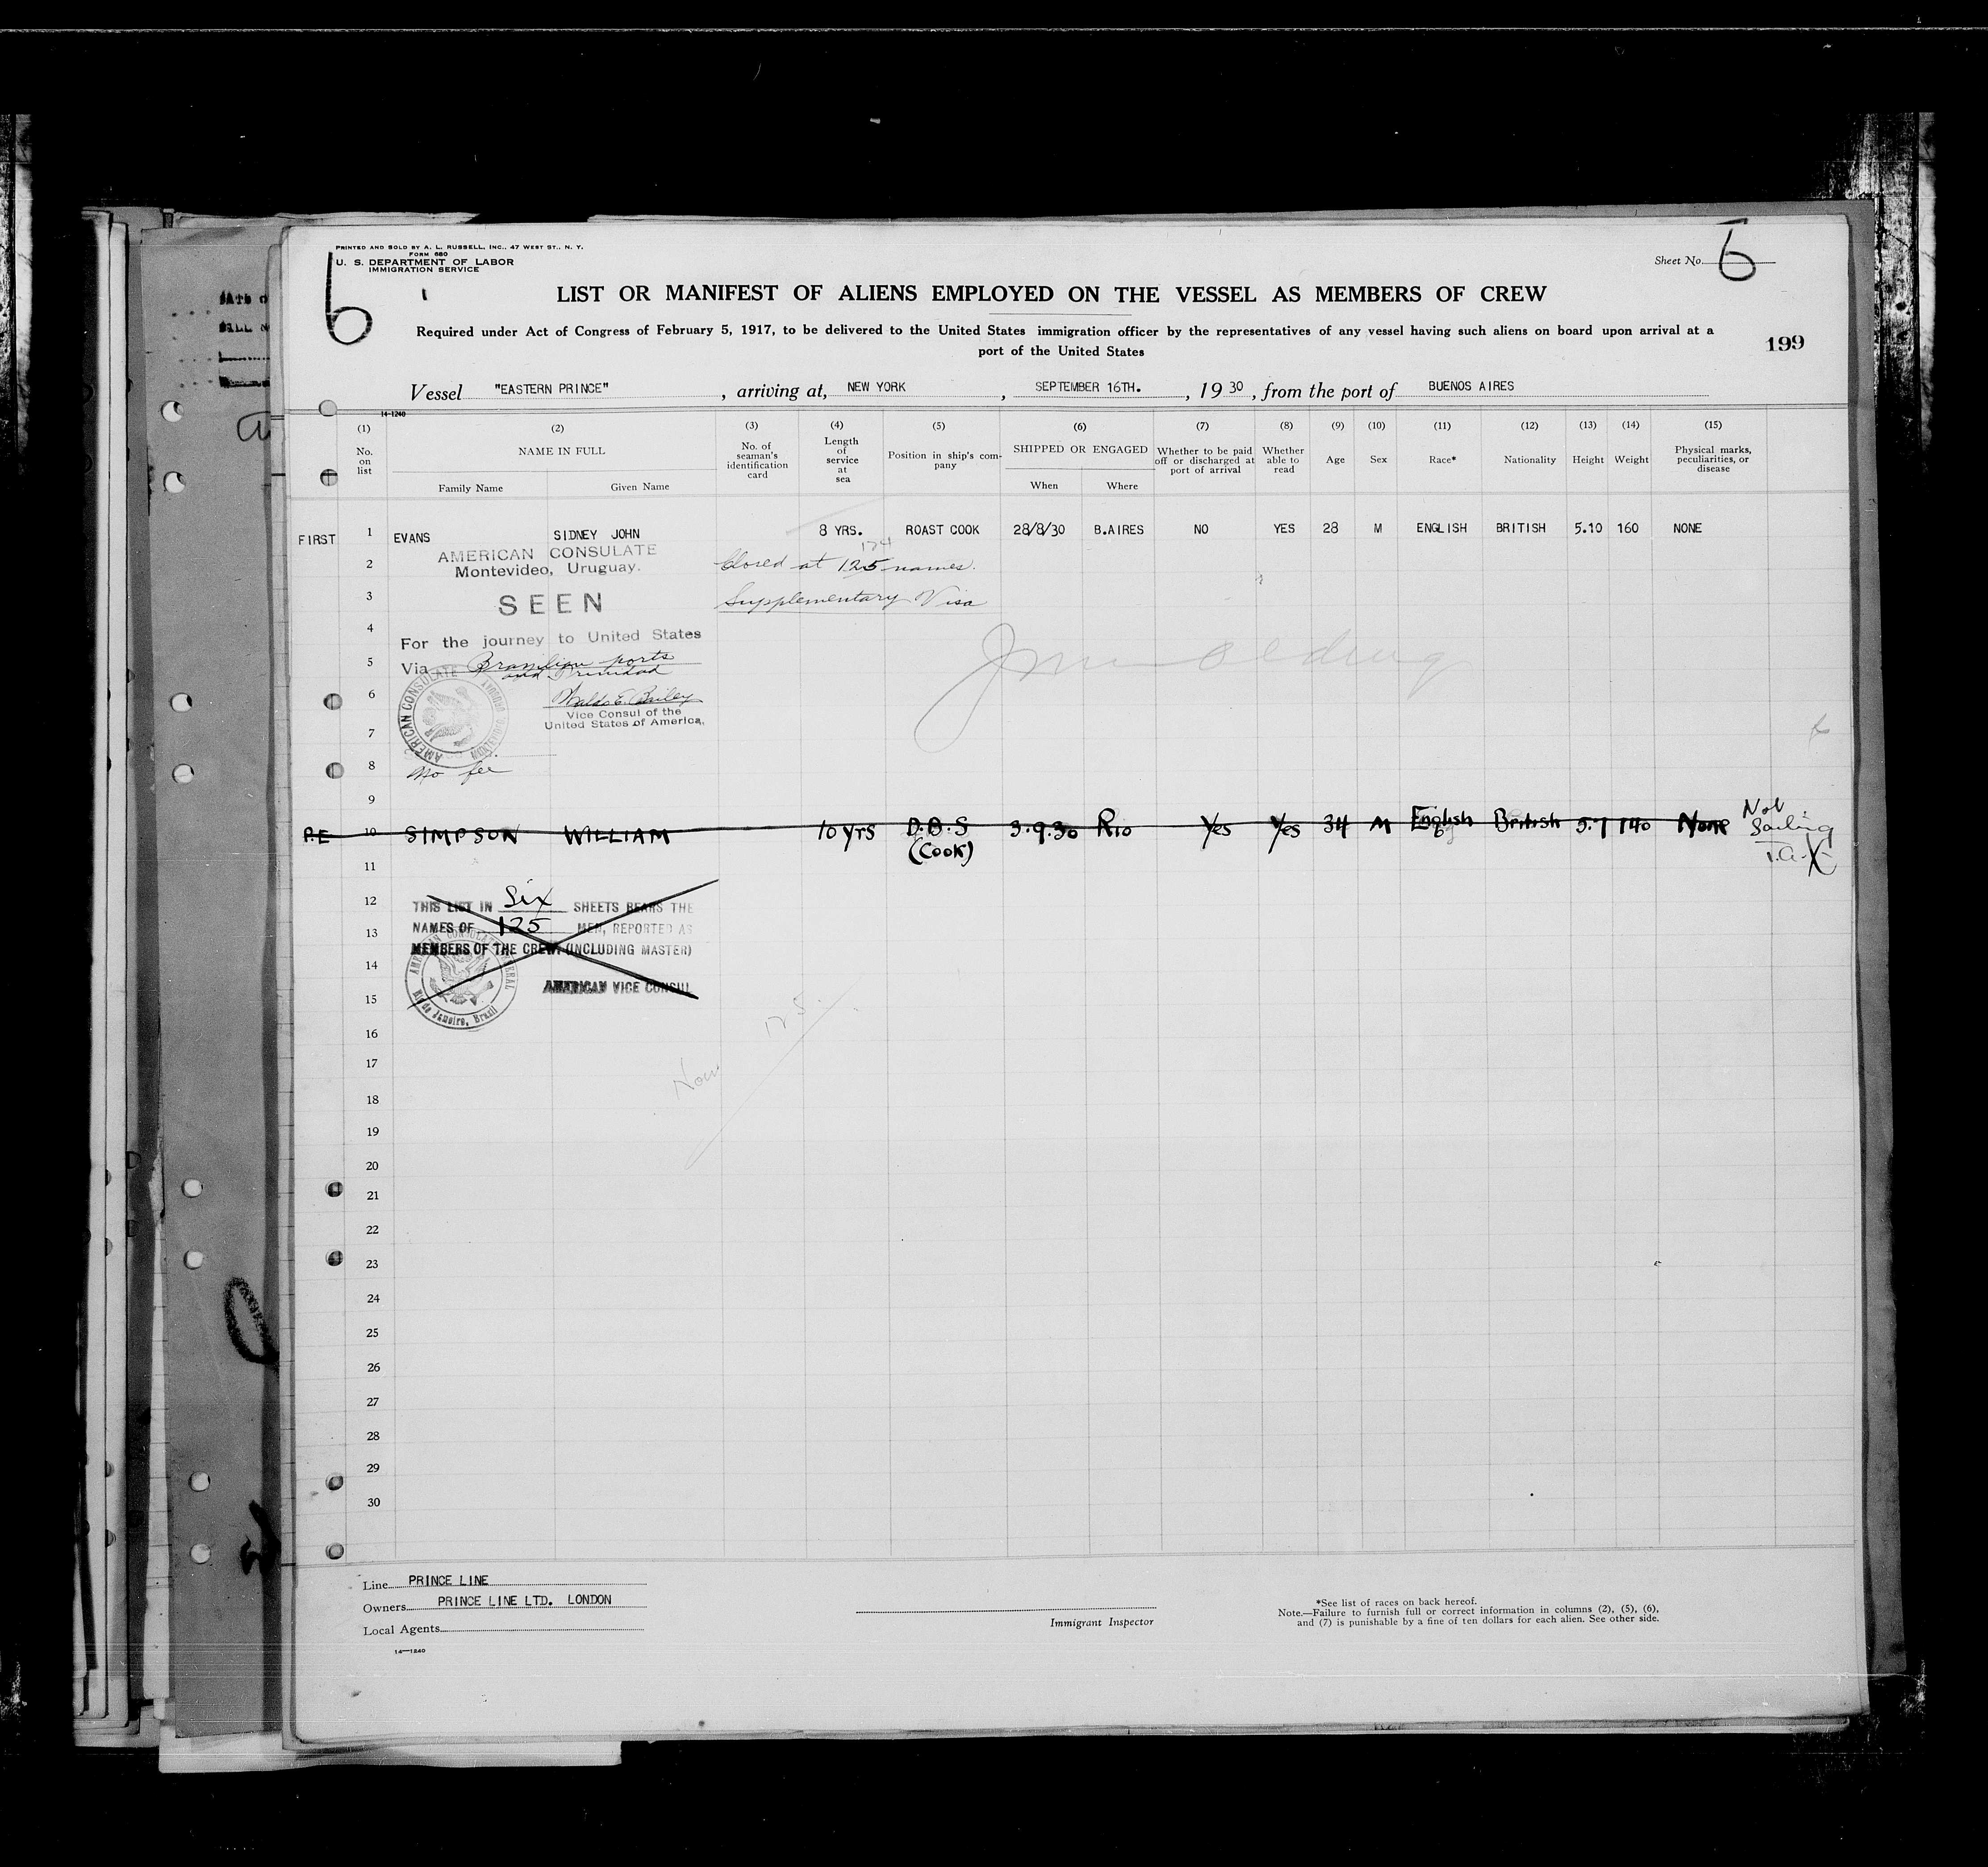 PRINTED AND SOLD BY A. L. RUSSELL, INC., 47 WEST ST., N. Y.
FORM 680
U. S. DEPARTMENT OF LABOR
IMMIGRATION SERVICE
6
Sheet No. 6
LIST OR MANIFEST OF ALIENS EMPLOYED ON THE VESSEL AS MEMBERS OF CREW
Required under Act of Congress of February 5, 1917, to be delivered to the United States immigration officer by the representatives of any vessel having such aliens on board upon arrival at a
port of the United States
199
Vessel "EASTERN PRINCE", arriving at, NEW YORK, SEPTEMBER 16TH., 19 30, from the port of BUENOS AIRES
14-1240
(1) (2) (3) (4) (5) (6) (7) (8) (9) (10) (11) (12) (13) (14) (15)
No. on list NAME IN FULL No. of seaman's identification card Length of service at sea Position in ship's company SHIPPED OR ENGAGED Whether to be paid off or discharged at port of arrival Whether able to read Age Sex Race* Nationality Height Weight Physical marks, peculiarities, or disease
Family Name Given Name When Where
FIRST 1 EVANS SIDNEY JOHN 8 YRS. ROAST COOK 28/8/30 B.AIRES NO YES 28 M ENGLISH BRITISH 5.10 160 NONE
AMERICAN CONSULATE
174
2 Montevideo, Uruguay. Closed at 125 names.
3 SEEN Supplementary Visa
4 For the journey to United States
5 Via Brazilian ports
and Trinidad
6 Waldo E. Bailey
Vice Consul of the
7 United States of America.
AMERICAN CONSULATE
8 No fee
9
P.E 10 SIMPSON WILLIAM 10 yrs D.B.S (Cook) 3.9.30 Rio Yes Yes 34 M English British 5.7 140 None Not Sailing
11
12 THIS LIST IN Six SHEETS BEARS THE
13 NAMES OF 125 MEN, REPORTED AS
MEMBERS OF THE CREW (INCLUDING MASTER)
14
AMERICAN VICE CONSUL
15
AMERICAN CONSULATE GENERAL
Rio de Janeiro, Brasil
125.
16
17
Now
18
19
20
21
22
23
24
25
26
27
28
29
30
Line PRINCE LINE
Owners PRINCE LINE LTD. LONDON
Local Agents
14—1240
Immigrant Inspector
*See list of races on back hereof.
Note.—Failure to furnish full or correct information in columns (2), (5), (6),
and (7) is punishable by a fine of ten dollars for each alien. See other side.